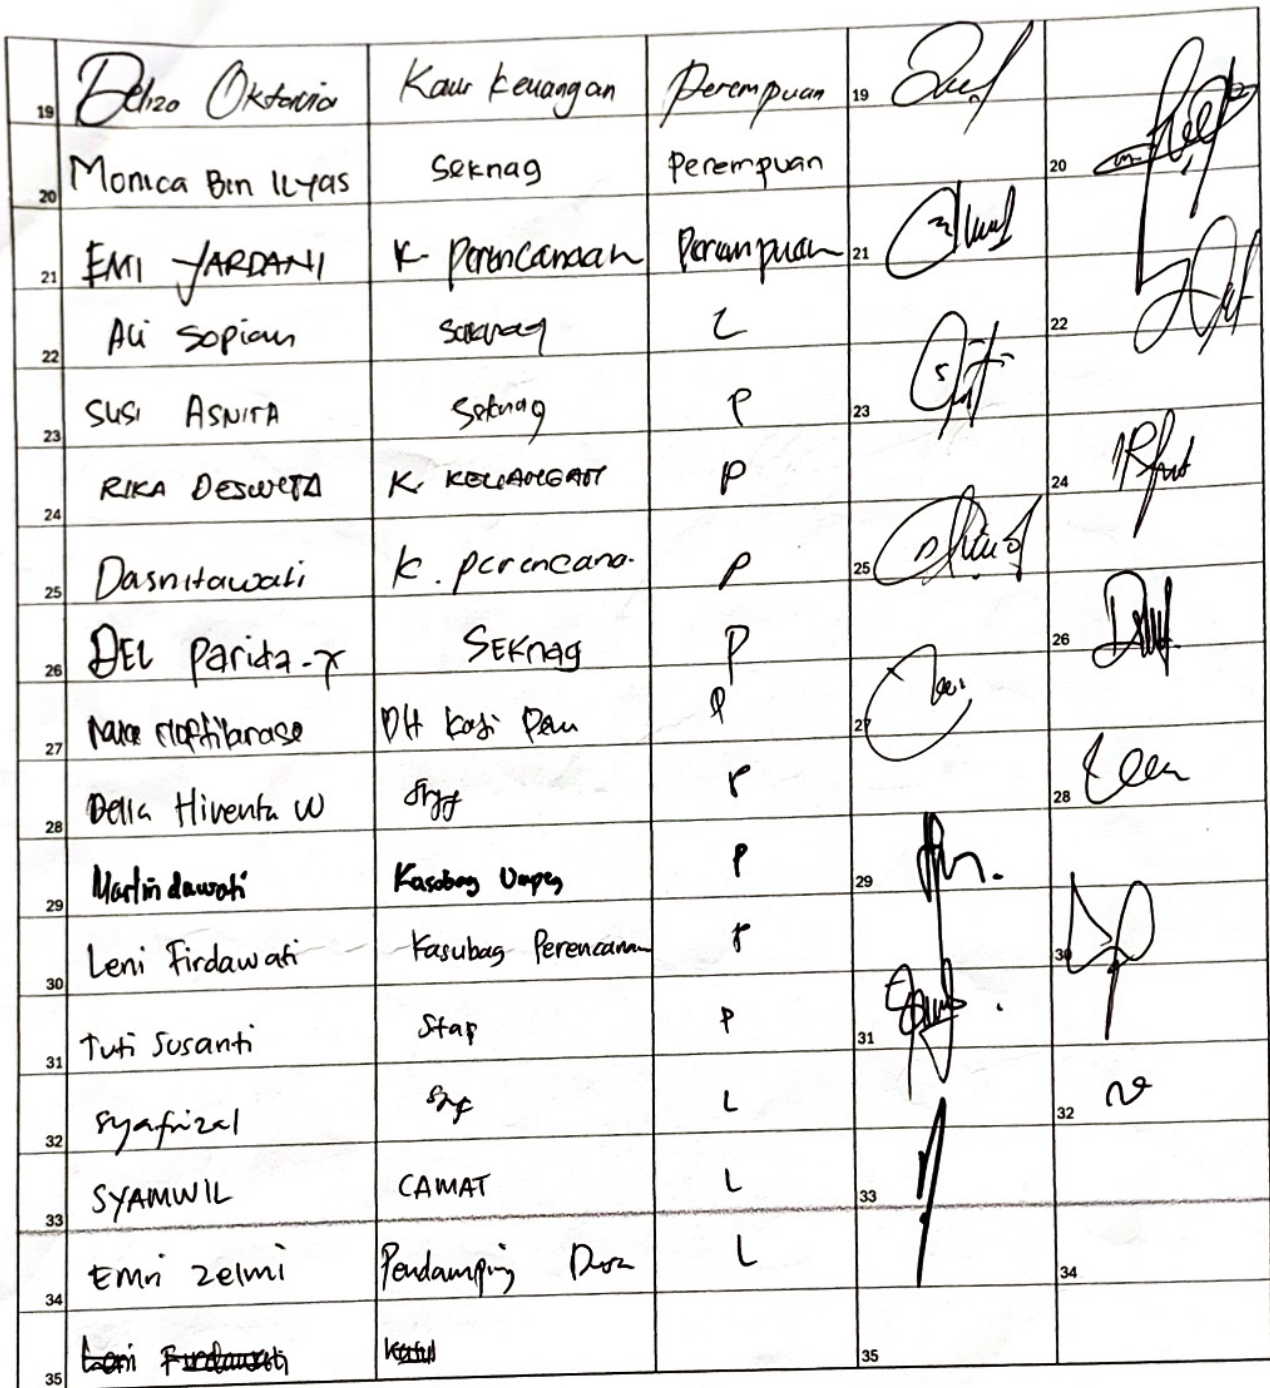 19 Delizo Oktavia Kaur Keuangan Perempuan 19
20 Monica Bin Ilyas Seknag Perempuan 20
21 EMI YARDANI K. Perencanaan Perempuan 21
22 Ali Sopian Seknag L 22
23 SUSI ASNITA Seknag P 23
24 RIKA K. KEUANGAN P 24
25 Dasnitawati K. perencana. P 25
26 DEL Parida.Y SEKnag P 26
27 PH Kasi P 27
28 Della Hiventa W P 28
29 Martindawati Kasobag Umpeg P 29
30 Leni Firdawati Kasubag Perencanaan P 30
31 Tuti Susanti Stap P 31
32 Syafrizal L 32
33 SYAMWIL CAMAT L 33
34 Emri Zelmi Pendamping L 34
35 Leni Firdawati 35